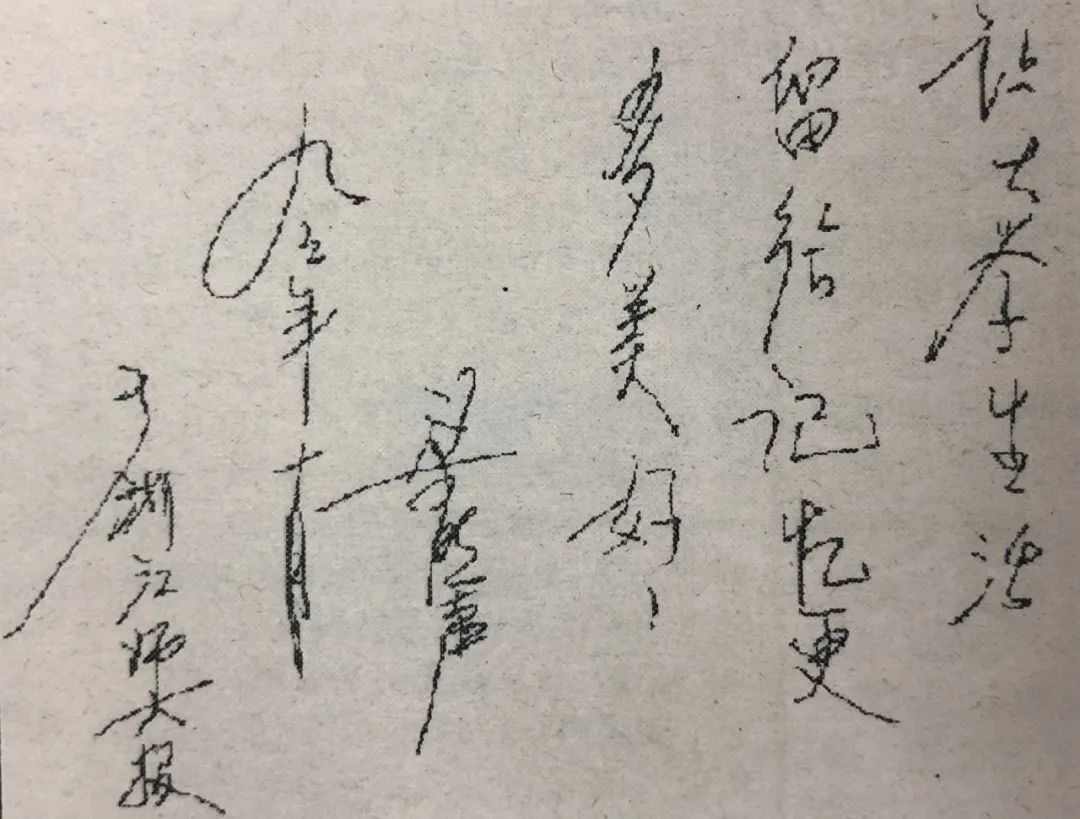 让大学生活
留给记忆更
多美好!
梁晓声
九三年十月
于浙江师大报